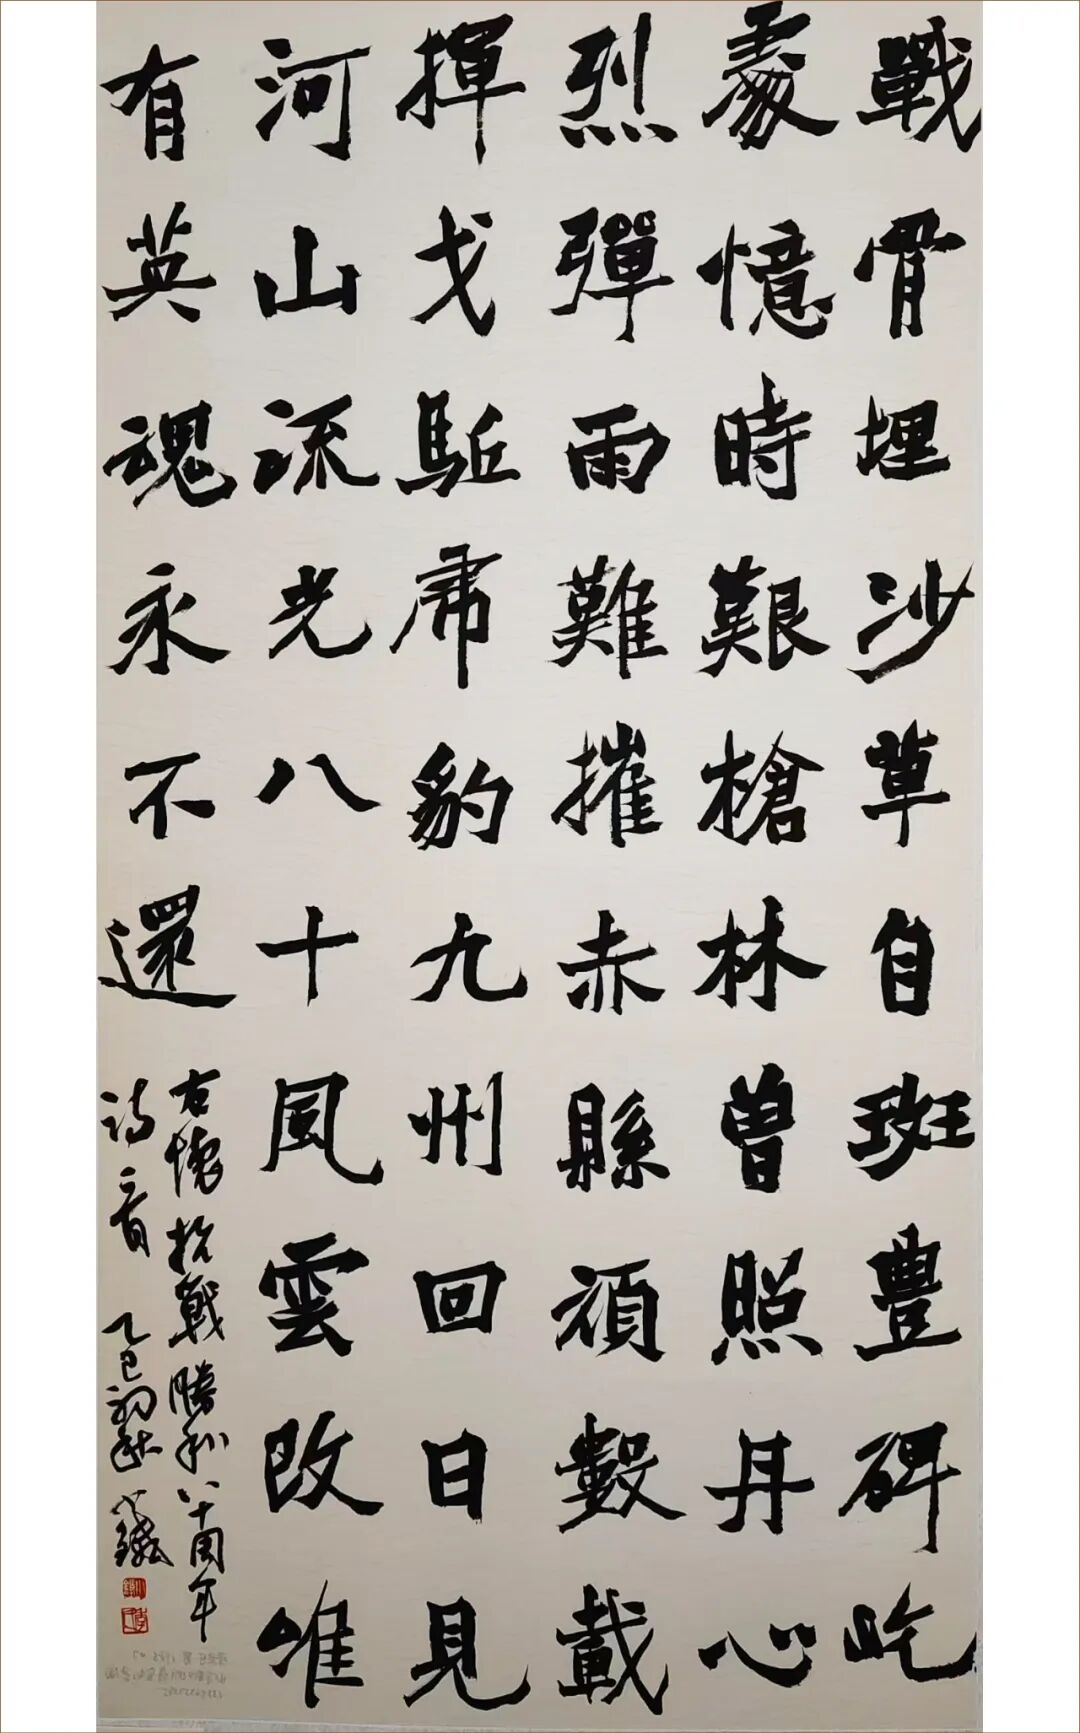 戰骨埋沙草自斑豊碑屹
處憶時艱槍林曾照丹心
烈彈雨難摧赤縣頑數載
揮戈駈虎豹九州回日見
河山流光八十風雲改唯
有英魂永不還
右懷抗戰勝利八十周年
詩一首 乙巳初秋 小鐵